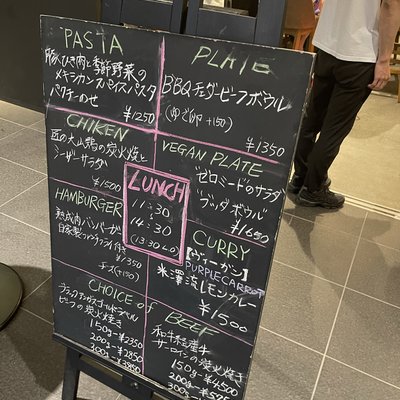 PASTA
豚ひき肉と季節野菜の
メキシカンスパイスパスタ
パクチーのせ
¥1250
PLATE
BBQチェダービーフボウル
(ゆで卵 +150)
¥1350
CHIKEN
匠の大山鶏の炭火焼と
シーザーサラダ
¥1500
VEGAN PLATE
ゼロミートのサラダ
ブッダボウル
¥1650
LUNCH
11:30
14:30
(13:30 L.O)
HAMBURGER
熟成肉ハンバーガー
自家製フレンチフライ付き
¥1350
チーズ(+150)
CURRY
【ヴィーガン】
PURPLE CARROT
米澤流レモンカレー
¥1500
CHOICE of
BEEF
ブラックアンガスゴールドラベル
ビーフの炭火焼き
150g-¥2350
200g-¥2850
300g-¥3850
和牛経産牛
サーロインの炭火焼き
150g-¥4500
200g-
300g-